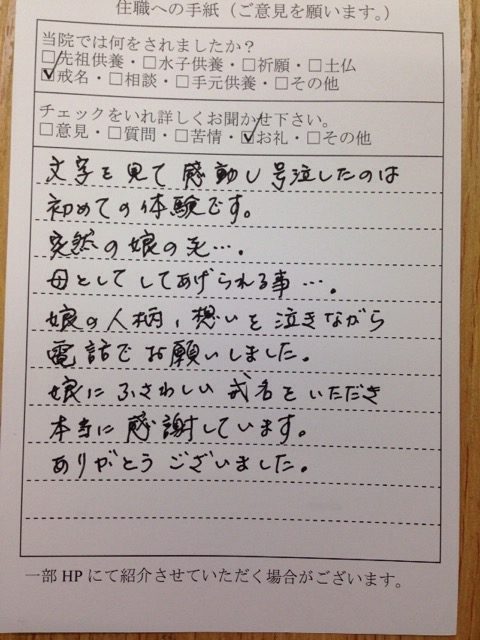 住職への手紙(ご意見を願います。)
当院では何をされましたか?
□先祖供養・□水子供養・□祈願・□土仏
☑戒名・□相談・□手元供養・□その他
チェックをいれ詳しくお聞かせ下さい。
□意見・□質問・□苦情・☑お礼・□その他
文字を見て感動し号泣したのは
初めての体験です。
突然の娘の死…。
母としてしてあげられる事…。
娘の人柄、想いを泣きながら
電話でお願いしました。
娘にふさわしい戒名をいただき
本当に感謝しています。
ありがとうございました。
一部HPにて紹介させていただく場合がございます。